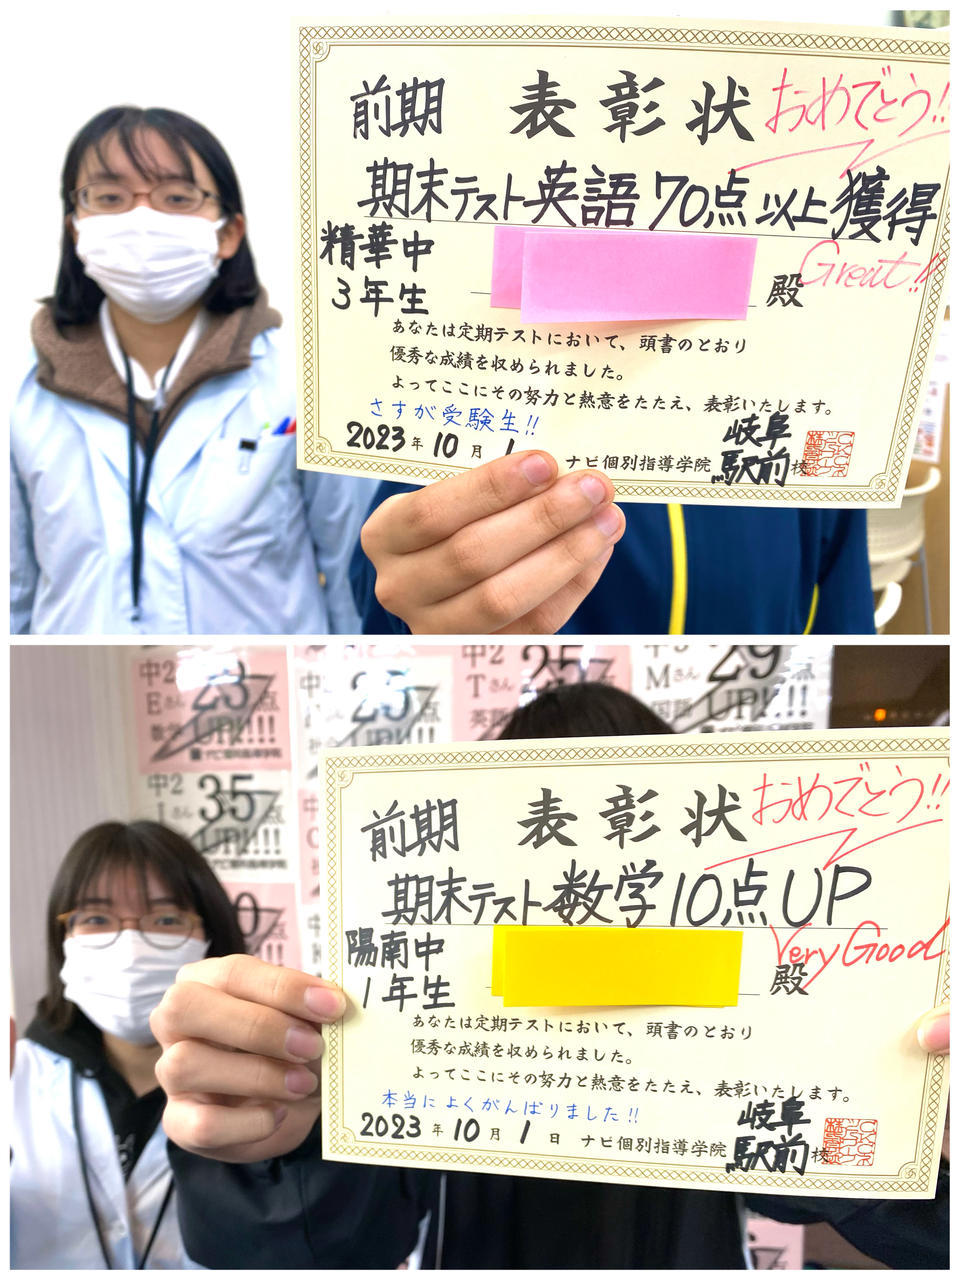 前期 表彰状 おめでとう!!
期末テスト英語70点以上獲得
精華中
3年生
殿
Great!!
あなたは定期テストにおいて、頭書のとおり
優秀な成績を収められました。
よってここにその努力と熱意をたたえ、表彰いたします。
さすが受験生!!
2023年10月1
ナビ個別指導学院 岐阜駅前校
中2
Eさん
数学
23
UP!!!
ナビ個別指導学院
25点
中2
Tさん
英語
25
Mさん
国語
29
UP!!!
中2
35点
UP!!!
前期 表彰状 おめでとう!!
期末テスト数学10点UP
陽南中
1年生
殿
Very Good
あなたは定期テストにおいて、頭書のとおり
優秀な成績を収められました。
よってここにその努力と熱意をたたえ、表彰いたします。
本当によくがんばりました!!
2023年10月1日
ナビ個別指導学院 岐阜駅前校